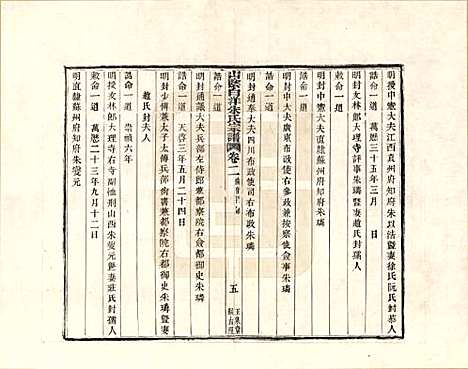 明授中憲大夫江西袁州府知府朱以法暨妻徐氏阮氏封恭人
誥命一道 萬曆三十五年三月 日
明封文林郎大理寺評事朱璘暨妻趙氏封孺人
明封中憲大夫直隸蘇州府知府朱璘
明封中大夫廣東布政使司右參政兼按察使僉事朱璘
誥命一道
明封通奉大夫四川布政使司右布政朱璘
山陰白洋朱氏宗譜 卷二
五
玉泉堂
誥命一道
明封通議大夫兵部左侍郎兼都察院右僉都御史朱璘
誥命一道 天啓三年五月二十四日
明封少傅兼太子太傅兵部尚書兼都察院右都御史朱璘暨妻
趙氏封夫人
誥命一道 崇禎六年
明授文林郎大理寺右寺副推刑山西朱燮元暨妻莊氏封孺人
敕命一道 萬曆二十三年九月十二日
明直隸蘇州府知府朱燮元